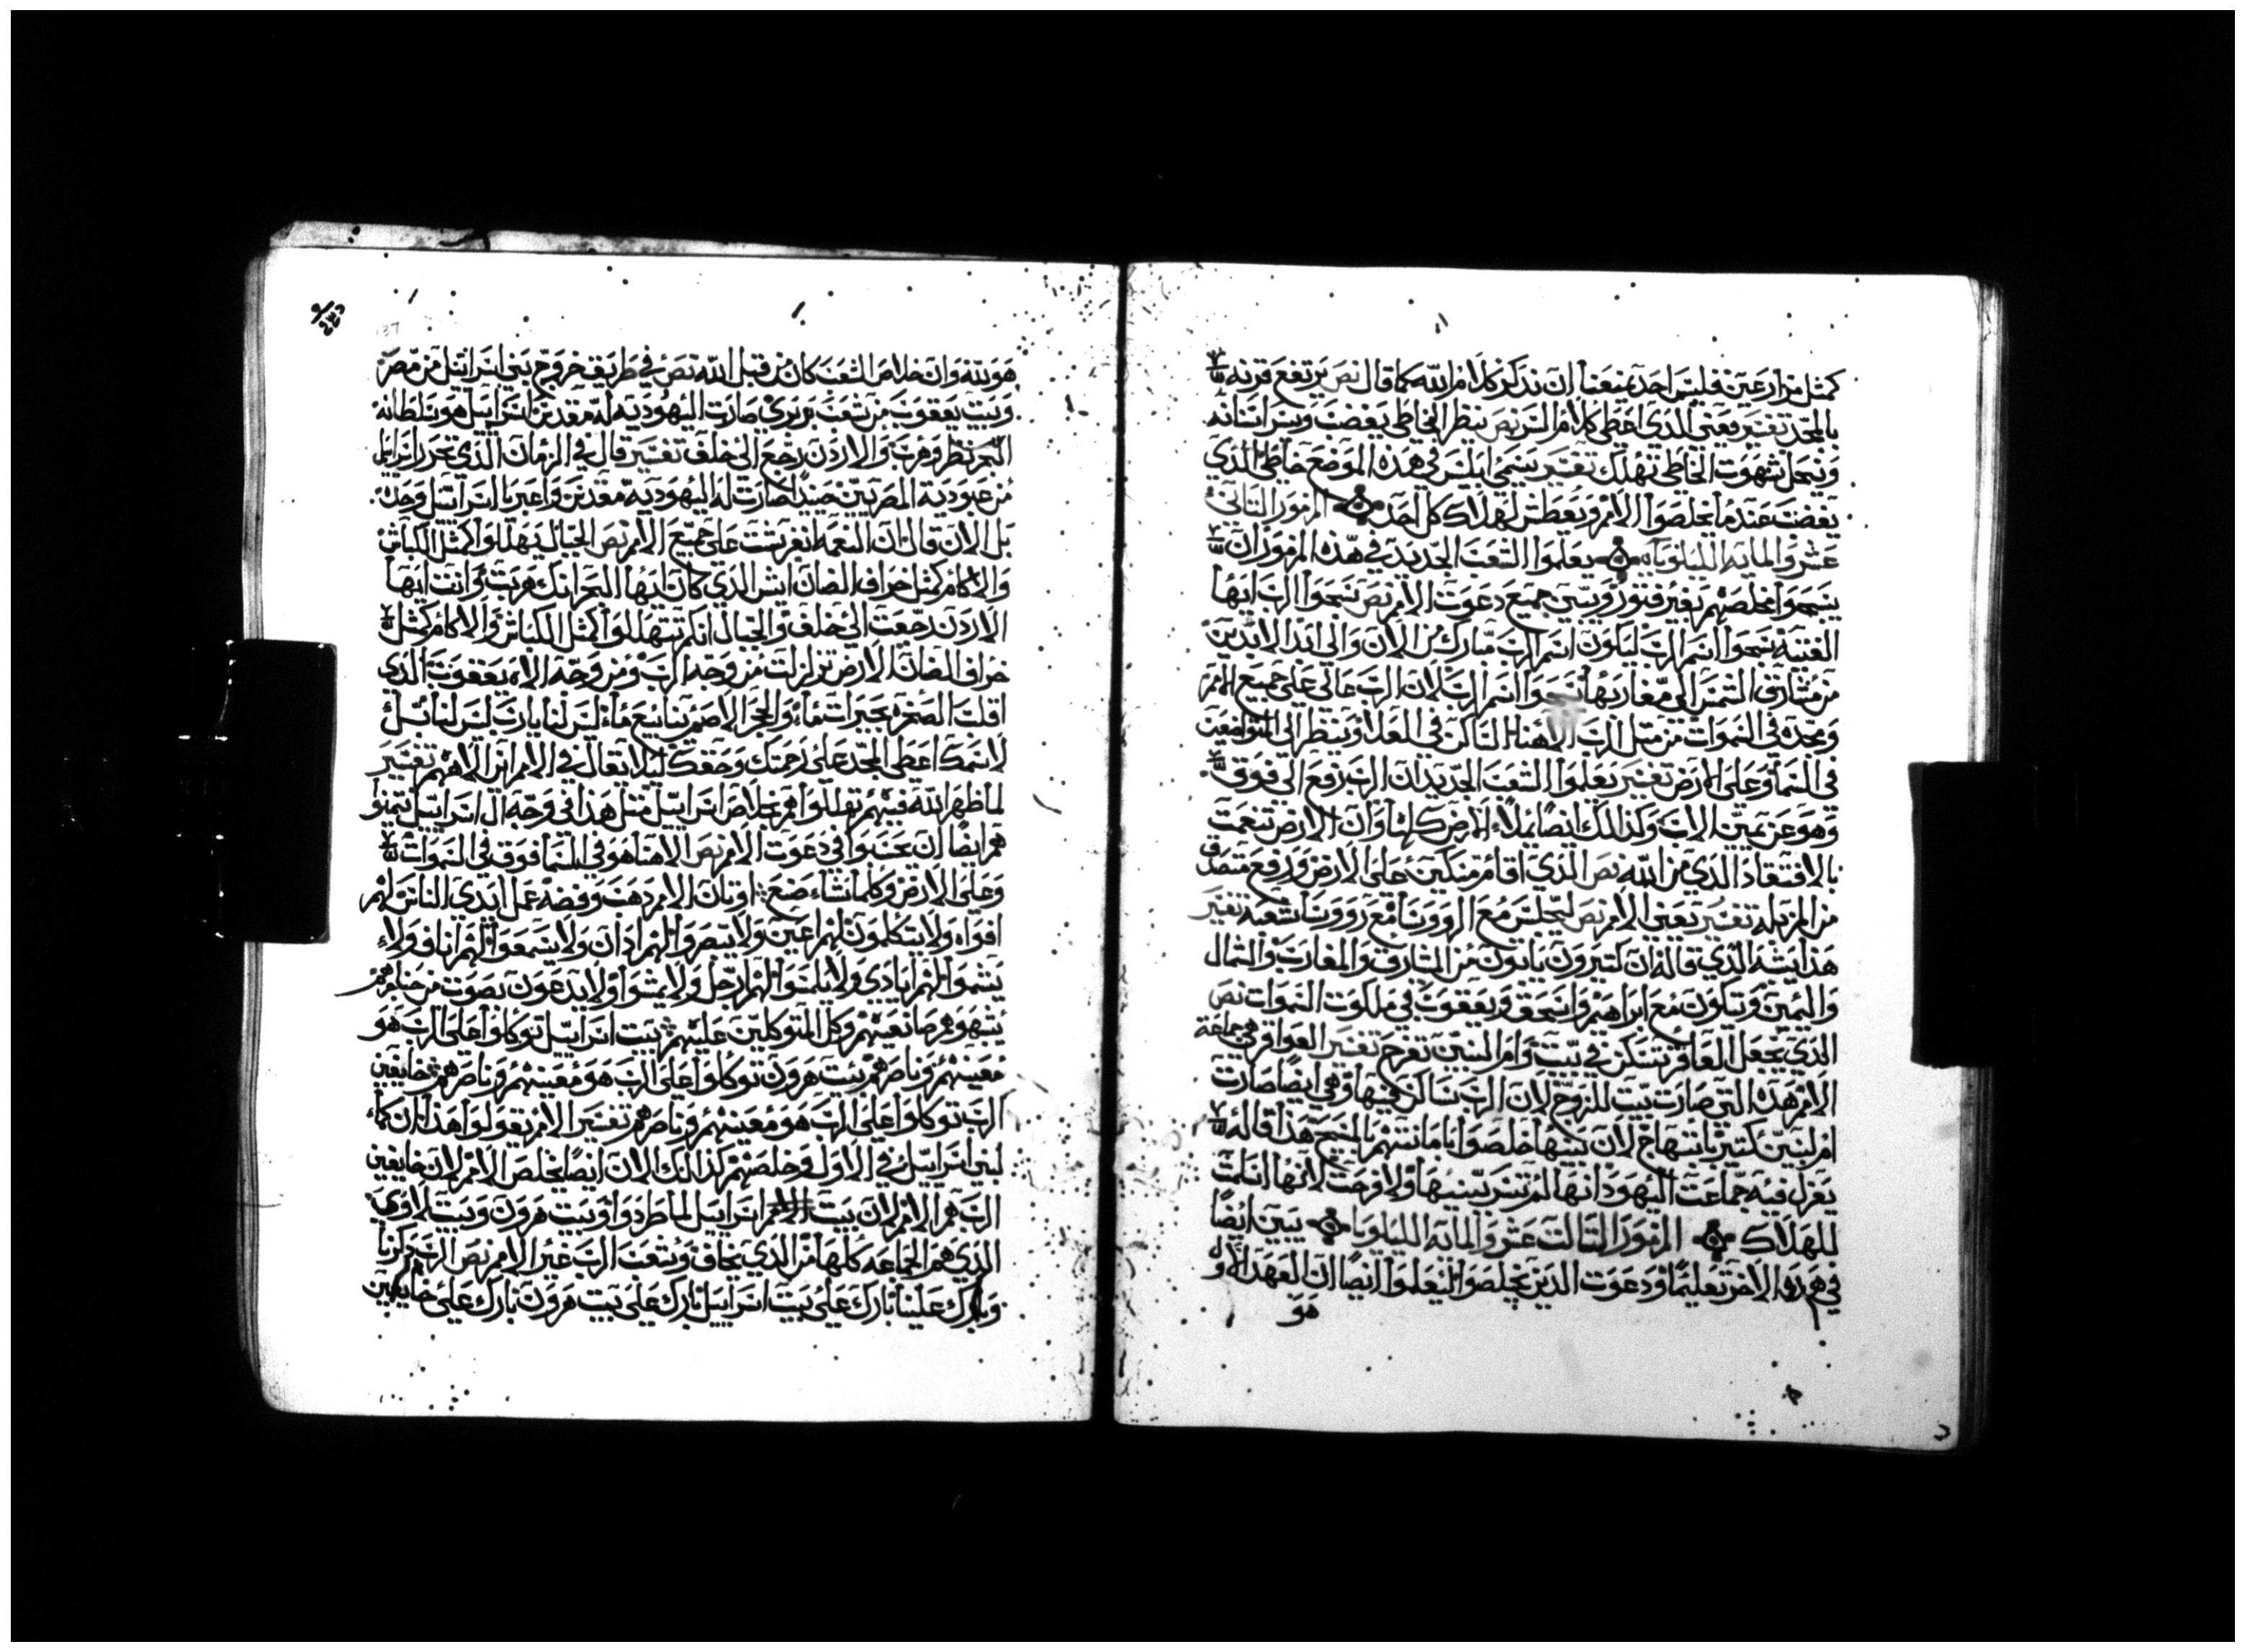 كمثل مزارعين فليس احد يمنعنا ان نذكر كلام الله كما قال نص يرتفع قرنه
بالمجد تفسير معنى الذي اعطى كلام السر نص ينظر الخاطى يغضب ويسر اسنانه
وينحل شهوت الخاطى تهلك تفسير يسمى ابليس في هذه الموضع خاطى الذي
يغضب عندما يخلصوا الامم ويعطش لهلاك كل احد المزمور التاني
عشر والمايه الليلويا يعلموا الشعب الجديد في هذه المزمور ان
يسبحوا مخلصهم بغير فتور ويسمى جميع دعوت الامم نص سبحوا الرب ايها
الفتيه سبحوا اسم الرب ليكون اسم الرب مبارك من الان والى ابد الابدين
من مشارق الشمس الى مغاربها سبحوا اسم الرب لان الرب عالى على جميع الامم
ومجده في السموات من مثل الرب الاهنا الساكن في العلا وينظر الى المتواضعين
في السما وعلى الارض تفسير يعلموا الشعب الجديد ان الرب رفع الى فوق
وهو عن يمين الاب وكذلك ايضا يملاء الارض كلها وان الارض تنعمت
بالافتقاد الذي من الله نص الذي اقام مسكين على الارض ورفع متصدق
من المزبله تفسير تعنى الامم نص ليجلس مع الروونسا مع رووسا شعبه تفسير
هذا يشبه الذي قاله ان كتيرون ياتون من المشارق والمغارب والشمال
واليمين وتتكون مع ابراهيم واسحق ويعقوب في ملكوت السموات نص
الذي يجعل العاقر تسكن في بيت وام البنين تفرح تفسير العواقر هي جماعة
الامم هذه التي صارت بيت للزوج لان الرب ساكن فيها وهي ايضا صارت
ام لبنين كتير بابتهاج لان بنيها خلصوا بامانتهم بالمسيح هذا قاله
يعزل فيه جماعت اليهود انها لم تسر ببنيها ولا فرحت لانها اسلمت
للهلاك المزمور التالت عشر والمايه الليلويا يبين ايضا
في هم ردوا الاخر تعليما ودعوت الذين يخلصوا ليعلموا ايضا ان العهد الاو
هو
هو بيته وان خلاص الشعب كان من قبل الله نص في طريق خروج بني اسراييل من مصر
وبيت يعقوب من شعب بربري صارت اليهوديه له مقدس اسراييل هو سلطانه
البحر نظر وهرب والاردن رجع الى خلف تفسير قال في الزمان الذي تحرر اسراييل
من عبودية المصريين حيند صارت له اليهوديه مقدس واعير باسراييل وحده
بل الان قال ان النعمه انغرست على جميع الامم نص الجبال تهللوا كمثل الكباش
والاكام كمثل خراف الضان ايش الذي كان لك ايها البحر انك هربت وانت ايها
الاردن رجعت الى خلف والجبال انكم تتهللوا كمثل الكباش والاكام كمثل
خراف الضان الارض تزلزلت من وجه الرب ومن وجه الاه يعقوب الذي
اقلب الصخره بحيرات ماء والحجر الاصم ينابيع ماء ليس لنا يارب ليس لنا بل
لاسمك اعطى المجد على رحمتك وحقك ليلا تقال في الامم اين الاههم تفسير
لما ظهر الله فيهم تهللوا هم بخلاص اسراييل مثل هذا في وجه ال اسراييل يتمنو
هم ايضا ان يحسبوا في دعوت الامم نص الاهنا هو في السما فوق في السموات
وعلى الارض وكلما شاء صنع اوتان الامم دهب وفضه عمل ايدي الناس لهم
افواه ولا يتكلمون لهم اعين ولا يبصروا لهم ادان ولا يسمعوا لهم اناف ولا
يشموا لهم ايادي ولا يلمسوا لهم ارجل ولا يمشوا ولا يدعون بصوت من حناجرهم
يشبهوهم صانعينهم وكل المتوكلين عليهم بيت اسراييل توكلوا على الرب هو
معينهم وناصرهم بيت هرون توكلوا على الرب هو معينهم وناصرهم خايفين
الرب توكلوا على الرب هو معينهم وناصرهم تفسير الامم يقولوا هذا ان كما
لبني اسراييل في الاول وخلصهم كذلك الان ايضا يخلص الامم لان خايفين
الرب هم الامم لان بيت اسراييل لما طردوا وبيت هرون وبيت لاوي
الذي هم الجماعه كلها من الذي يخاف وشعب الرب غير الامم نص الرب ذكرنا
وبارك علينا بارك على بيت اسراييل بارك على بيت هرون بارك على خايفين